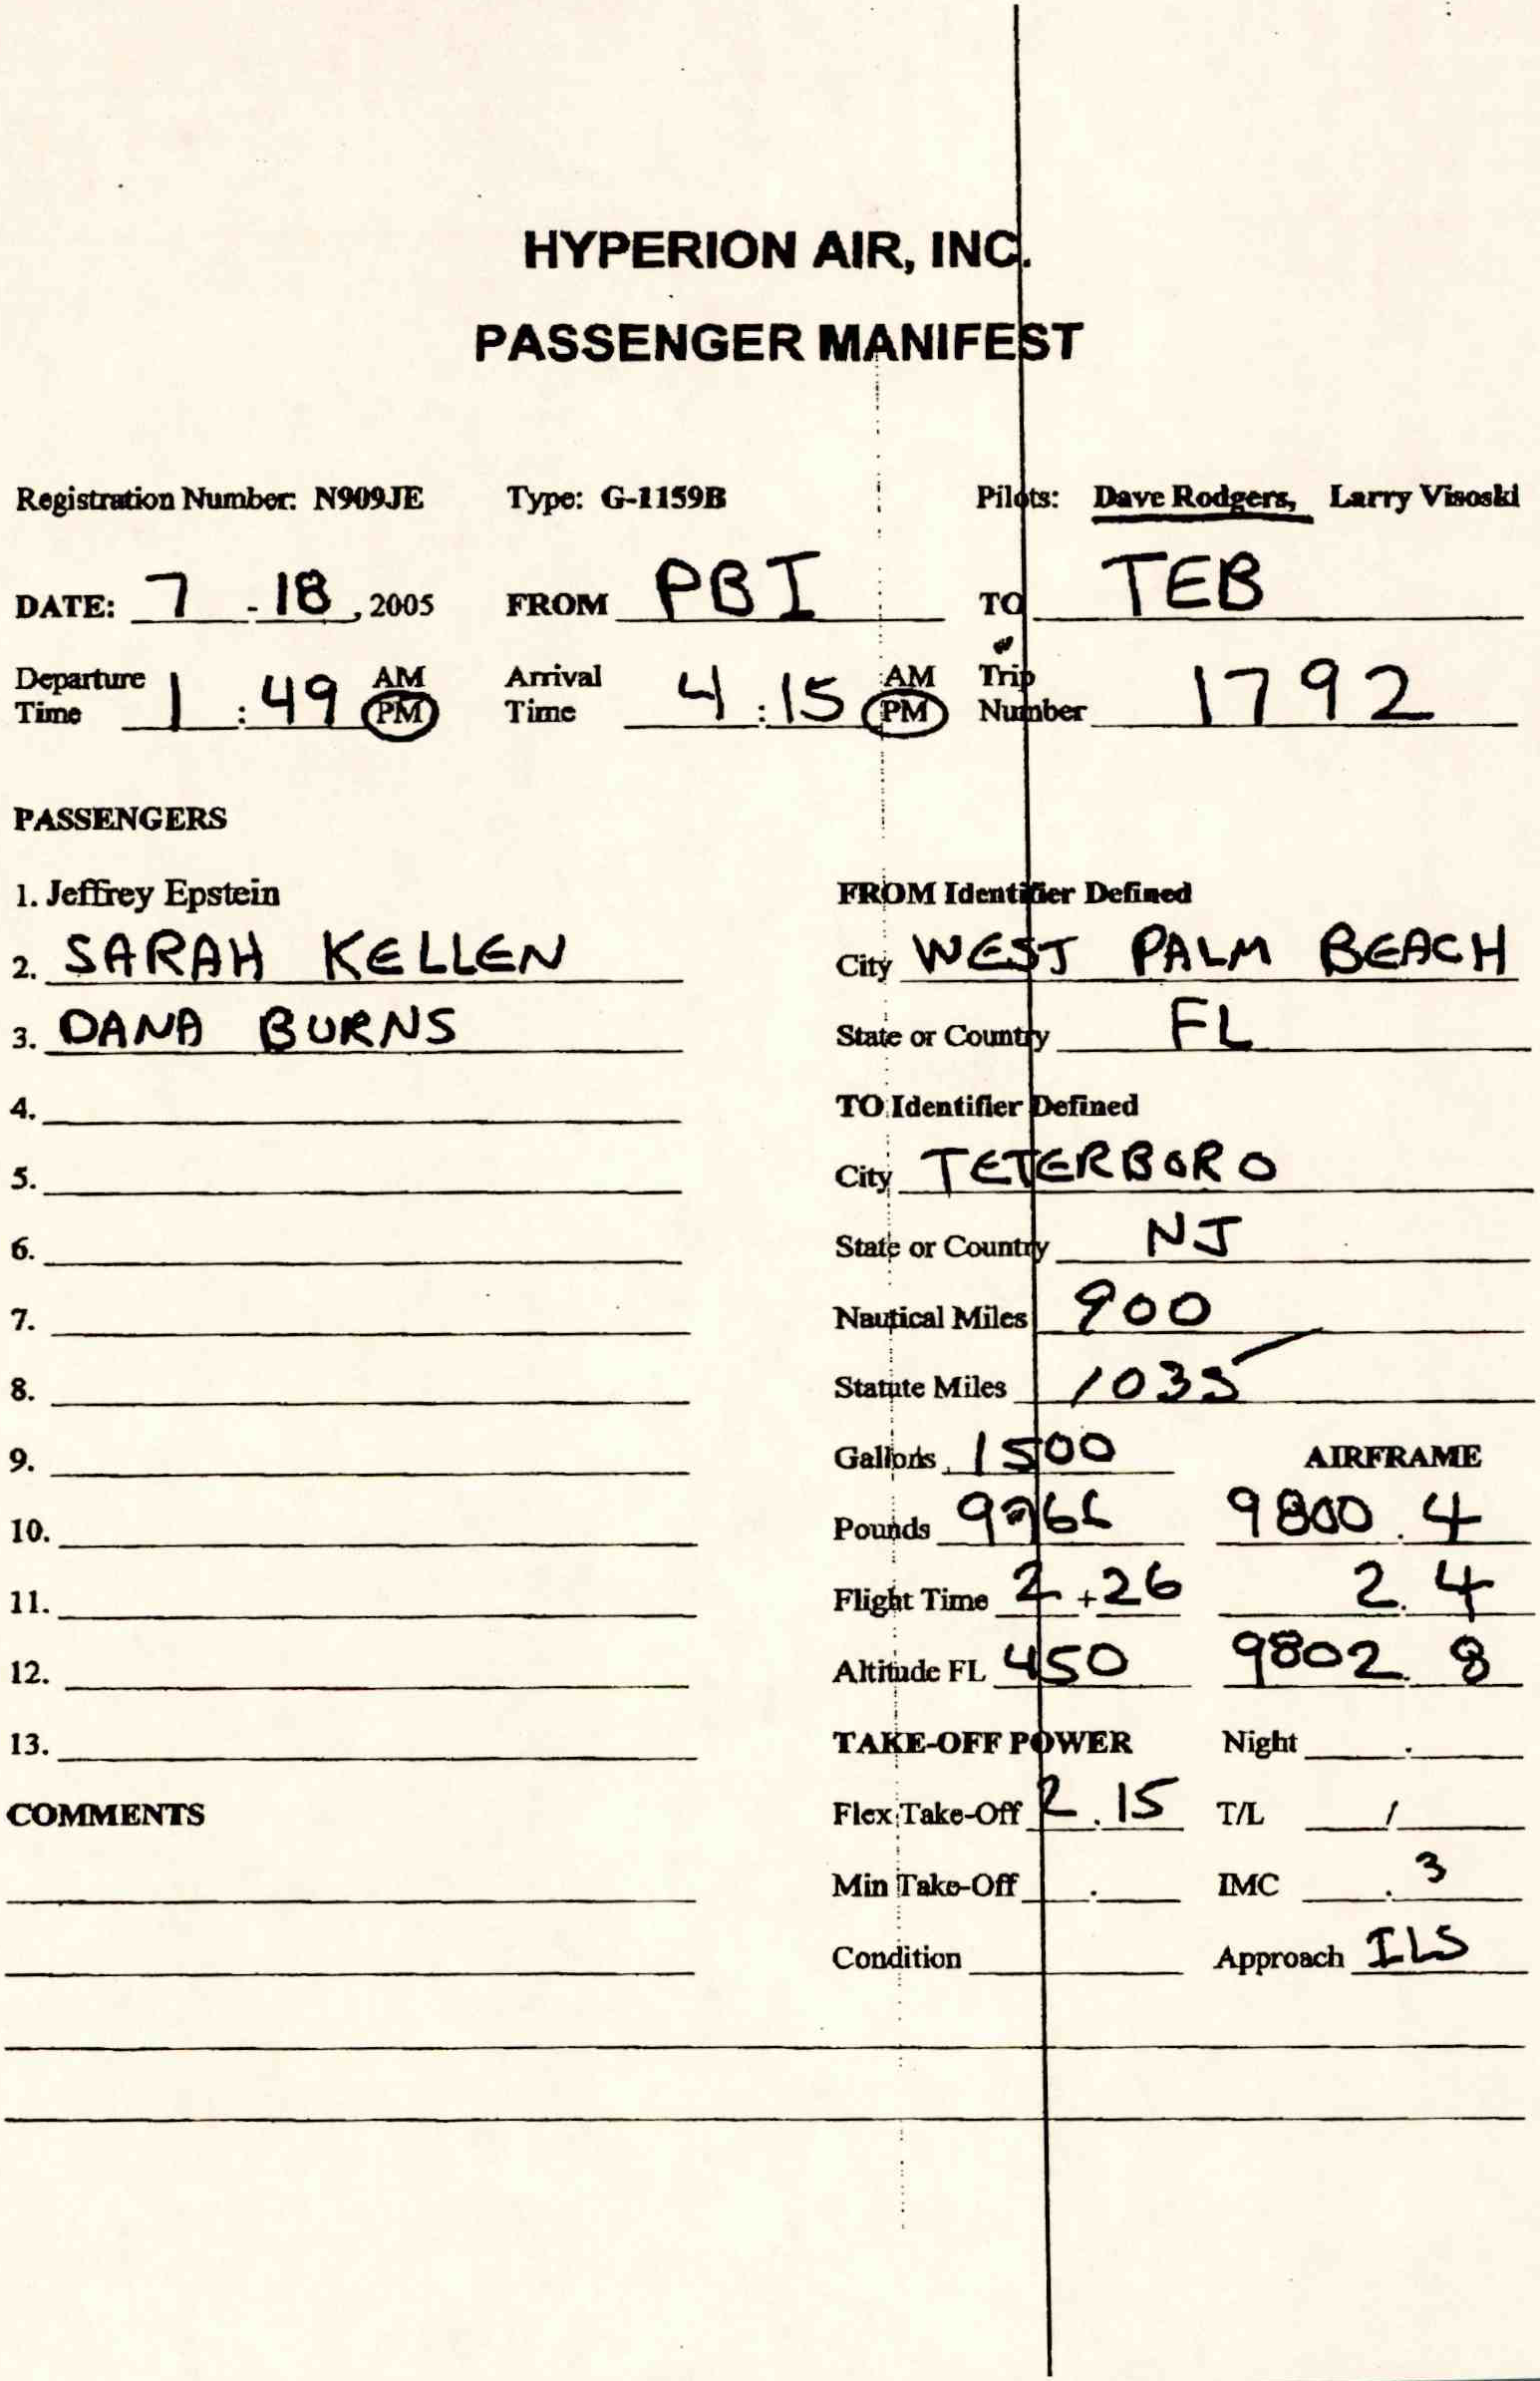 HYPERION AIR, INC.
PASSENGER MANIFEST
Registration Number: N909JE Type: G-1159B Pilots: Dave Rodgers, Larry Visoski
DATE: 7 - 18, 2005 FROM PBI TO TEB
Departure Time 1 : 49 AM PM Arrival Time 4 : 15 AM PM Trip Number 1792
PASSENGERS
1. Jeffrey Epstein
2. SARAH KELLEN
3. DANA BURNS
4.
5.
6.
7.
8.
9.
10.
11.
12.
13.
COMMENTS
FROM Identifier Defined
City WEST PALM BEACH
State or Country FL
TO Identifier Defined
City TETERBORO
State or Country NJ
Nautical Miles 900
Statute Miles 1035
Gallons 1500 AIRFRAME
Pounds 9800.4
Flight Time 2 + 26 2.4
Altitude FL 450 9802.8
TAKE-OFF POWER Night .
Flex Take-Off 2.15 T/L /
Min Take-Off . IMC .3
Condition Approach ILS